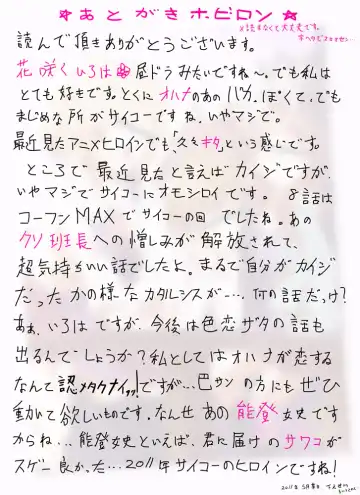 ☆あとがきホビロン☆
※読まなくて大丈夫です。
読んで頂きありがとうございます。
花咲くいろは昼ドラみたいですね〜。でも私は
とても好きです。とくにオハナのあのバカっぽくて、でも
まじめな所がサイコーですね、いやマジで。
最近見たアニメヒロインでも、「久々キタ」という感じです。
ところで最近見たと言えばカイジですが、
いやマジでサイコーにオモシロイです。8話は
コーフンMAXでサイコーの回でしたね。あの
クソ班長への憎しみが解放されて、
超気持ちいい話でしたよ。まるで自分がカイジ
だったかの様なカタルシスが…、何の話だっけ?
あぁ、いろはですが、今後は色恋ザタの話も
出るんでしょうか?私としてはオハナが恋する
なんて認メタクナイッッ!ですが…巴サンの方にもぜひ
動いて欲しいものです。なんせあの能登女史です
からね…能登女史といえば、君に届けのサワコが
スゲー良かった…2011年サイコーのヒロインですね!
2011年5月